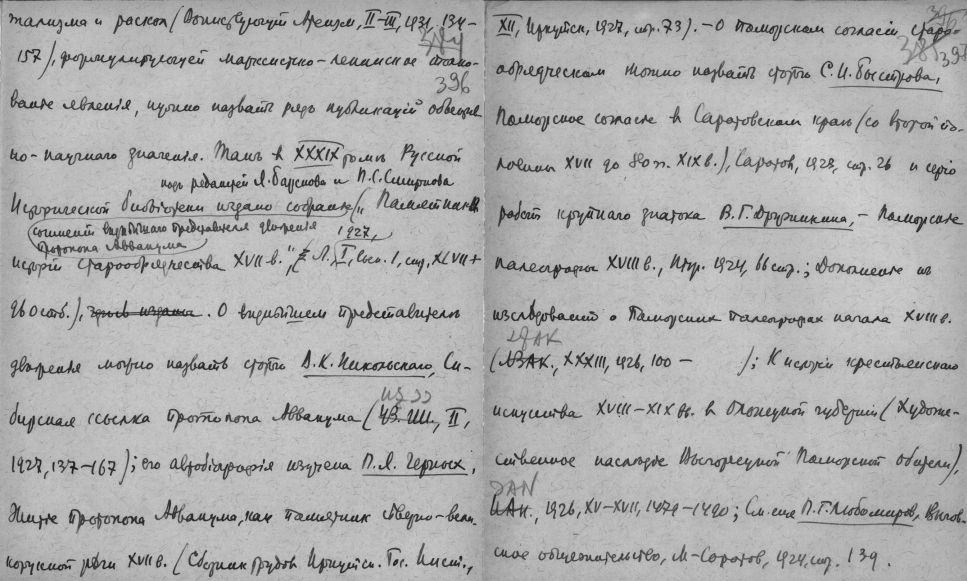 жализма и раскол (Воинствующий Атеизм, II–III, 1931, 134–
157), формулирующей марксистско-ленинское толко-
396
вание явления, нужно назвать ряд публикаций общего
но-научного значения. Так в XXXIX томе Русской
под редакцией Я. Барскова и П. С. Смирнова
Исторической библиотеки издано собрание „Памятники
сочинений виднейшего представителя движения 1927,
протопопа Аввакума
истории старообрядчества XVII в.", Л., I, вып. 1, стр. XLVII +
960 стб.), . О виднейшем представителе
движения можно назвать статью В. К. Никольского, Си-
бирская ссылка протопопа Аввакума (II,
1927, 137–167); его автобиография изучена П. Я. Черных,
Житие протопопа Аввакума, как памятник северно-вели-
корусской речи XVII в. (Сборник трудов Иркутск. Гос. Инст.,
XII, Иркутск, 1927, стр. 73). – О Поморском согласии старо-
397
обрядческом можно назвать статью С. И. Быстрова,
Поморское согласие в Саратовском крае (со второй по-
ловины XVII до 80 гг. XIX в.), Саратов, 1923, стр. 26 и серию
работ крупного знатока В. Г. Дружинина, – Поморские
палеографы XVIII в., Птгр. 1921, 66 стр.; Дополнение к
исследованию о Поморских палеографах начала XVIII в.
ЛЗАК
(ЛЗАК., XXXIII, 1926, 100 – ); К истории крестьянского
искусства XVIII–XIX вв. в Олонецкой губернии (Художе-
ственное наследие Выгорецкой Поморской обители),
ИАН
ИАН., 1926, XV–XVII, 1479–1490; См. еще П. Г. Любомиров, Выгов-
ское общежительство, М–Саратов, 1924, стр. 139.